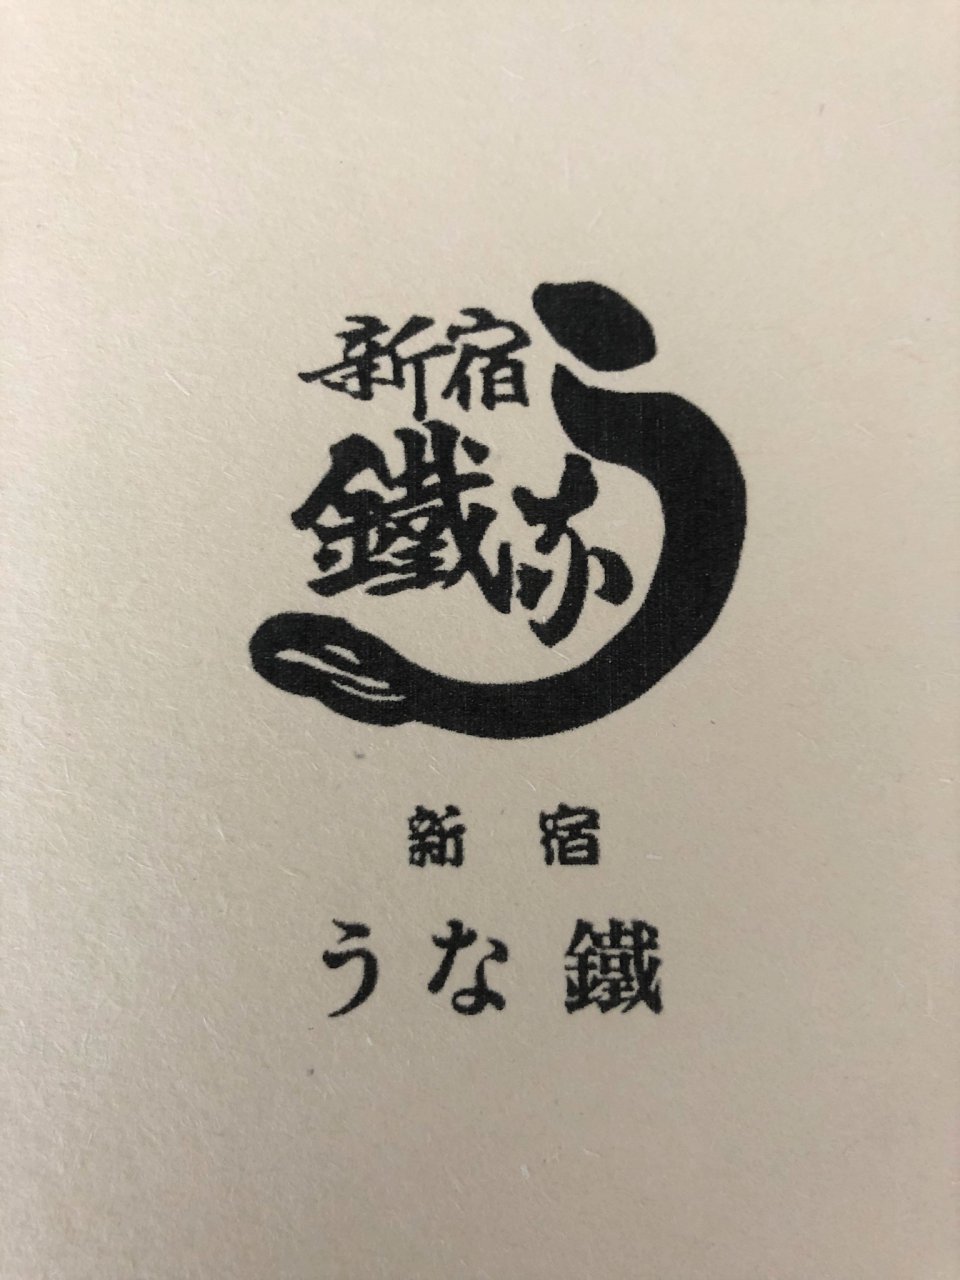 新宿
うな鐵
新宿
うな鐵